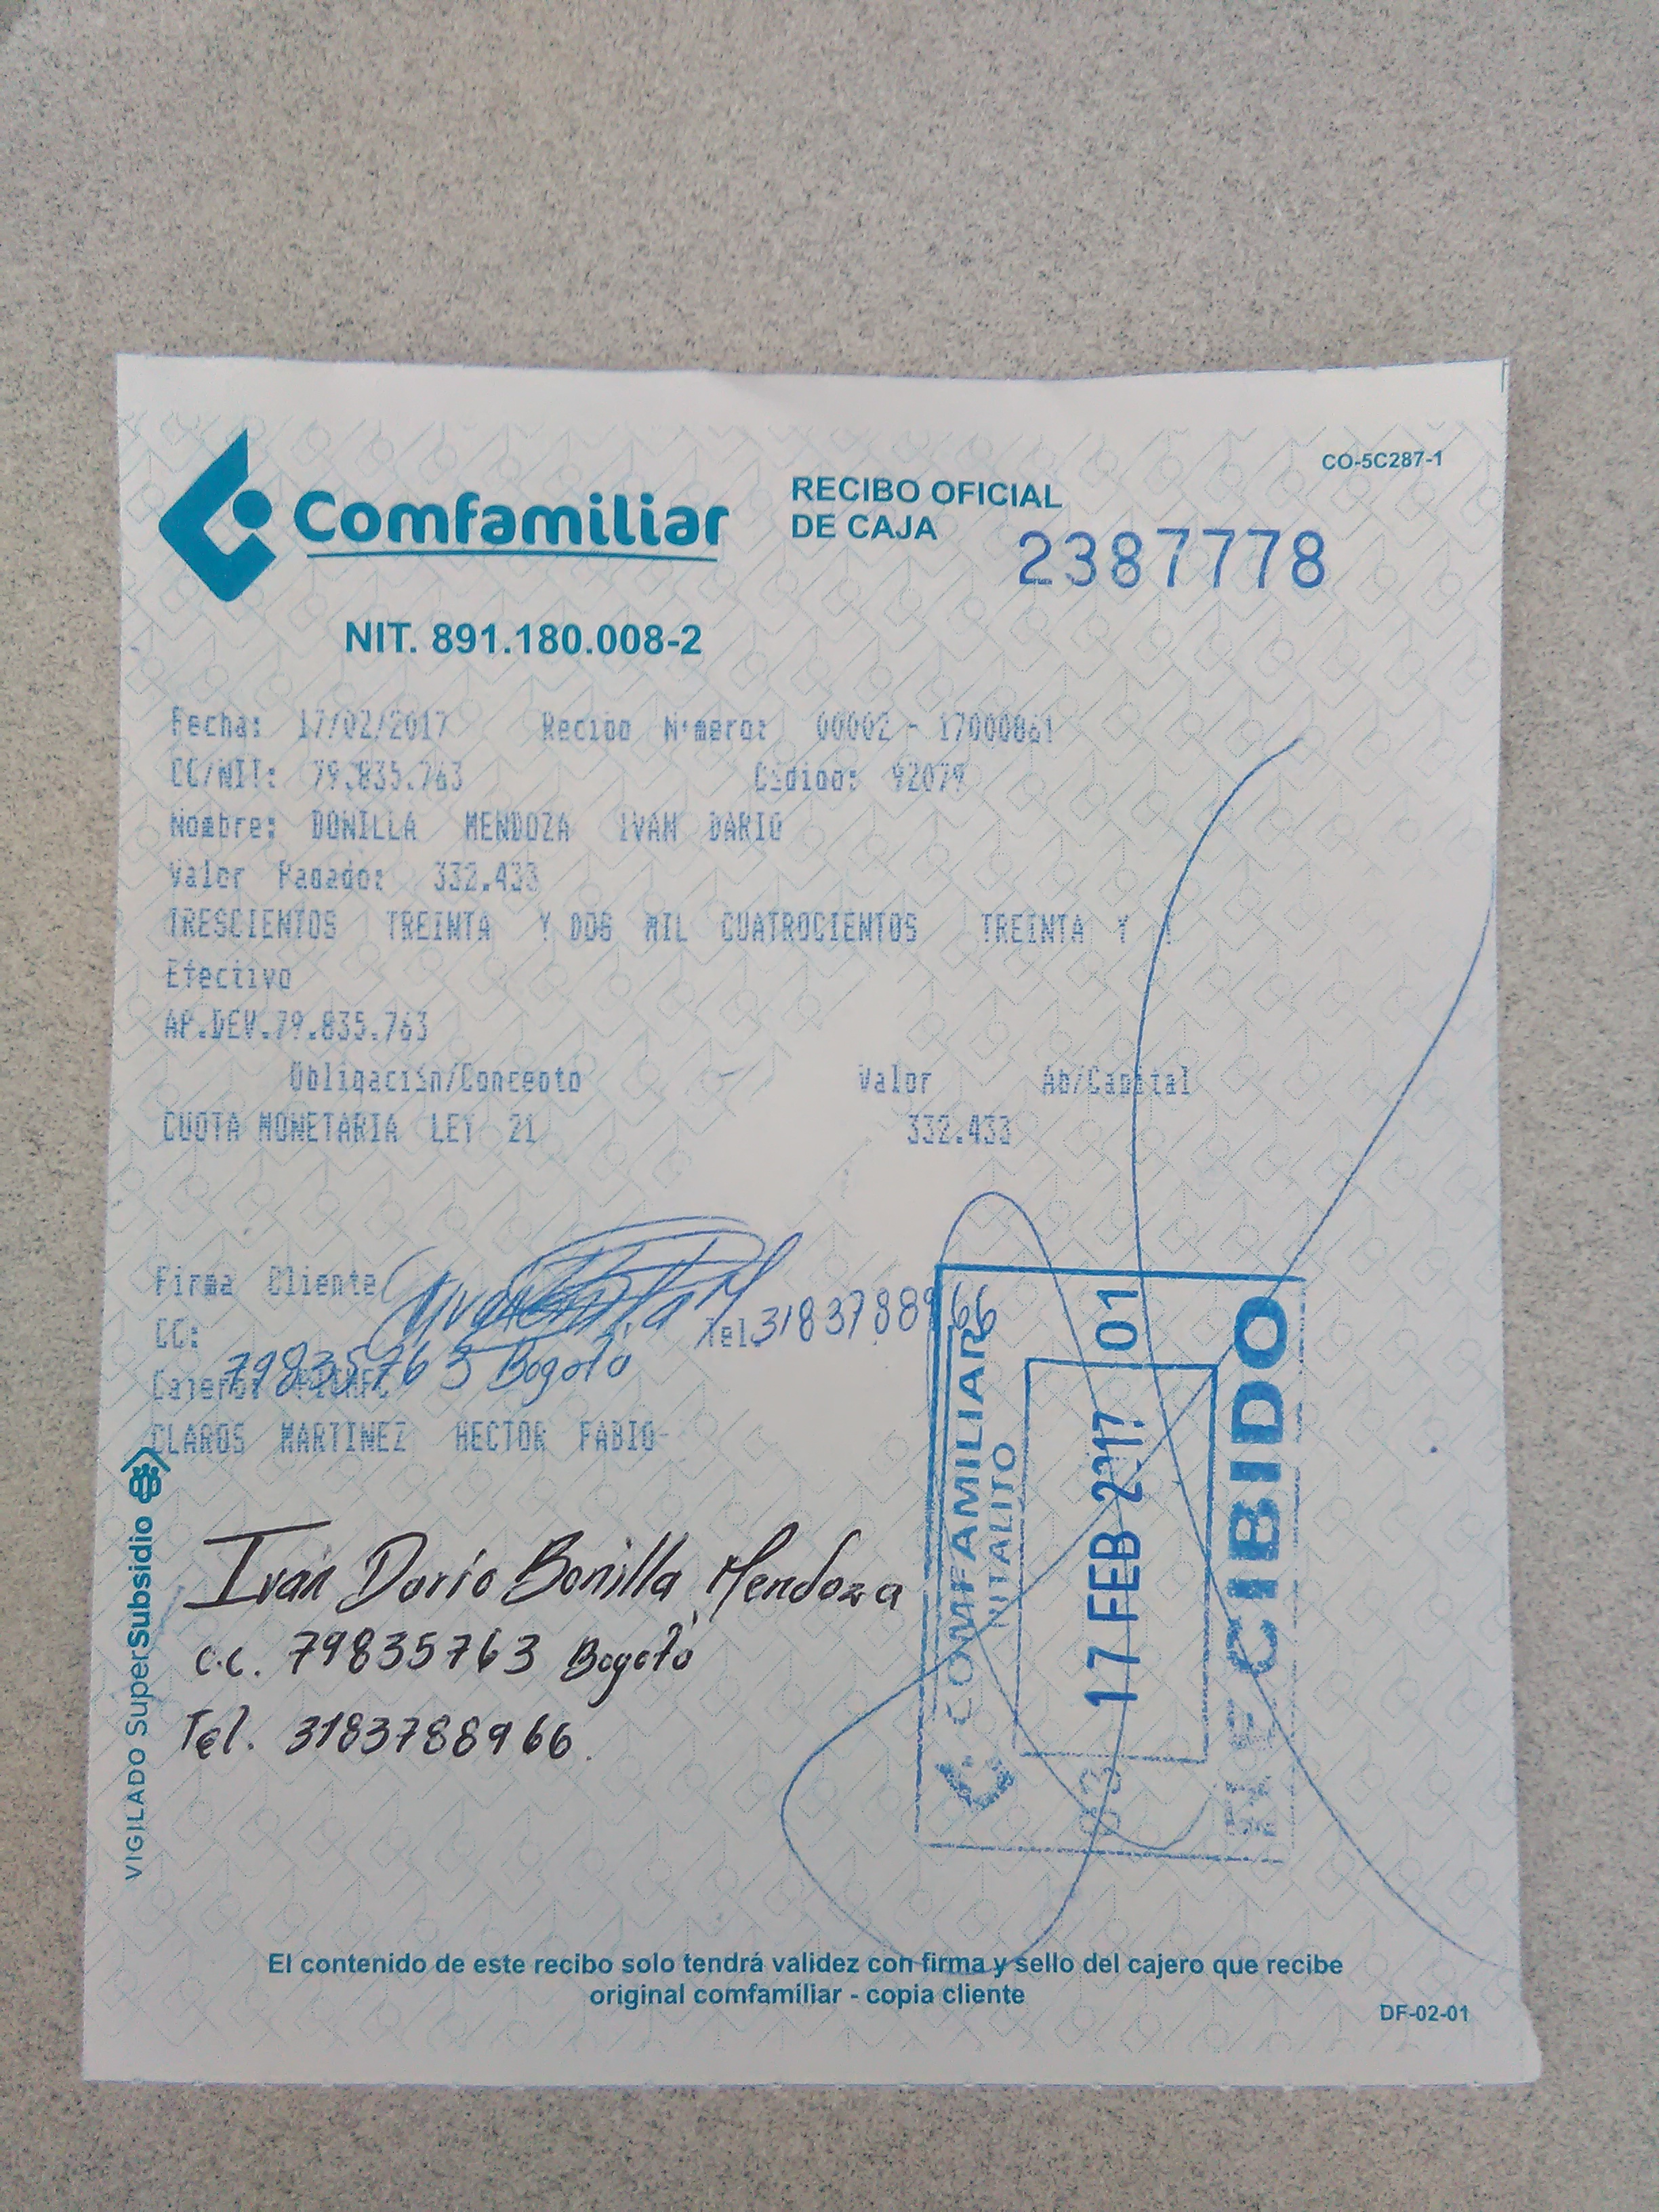 CO-5C287-1
Comfamiliar
RECIBO OFICIAL
DE CAJA
2387778
NIT. 891.180.008-2
Fecha: 17/02/2017 Recibo N·mero: 00002 - 17000861
CC/NIT: 79.835.763 Código: 92079
Nombre: BONILLA MENDOZA IVAN DARIO
Valor Pagado: 332.433
TRESCIENTOS TREINTA Y DOS MIL CUATROCIENTOS TREINTA Y T
Efectivo
AP.DEV.79.835.763
Obligación/Concepto Valor Ab/Capital
CUOTA MONETARIA LEY 21 332.433
Firma Cliente
CC: Tel. 3183788966
79835763 Bogotá
Cajero:
CLAROS MARTINEZ HECTOR FABIO-
Iván Darío Bonilla Mendoza
c.c. 79835763 Bogotá
Tel. 3183788966.
VIGILADO SuperSubsidio
COMFAMILIAR
PITALITO
01
17 FEB 2017
03
RECIBIDO
El contenido de este recibo solo tendrá validez con firma y sello del cajero que recibe
original comfamiliar - copia cliente
DF-02-01